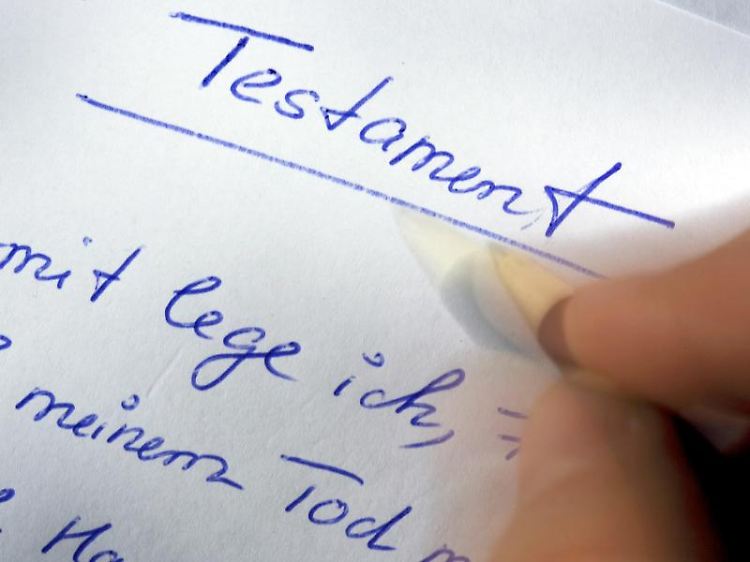 Testament
mit lege ich,
meinem Tod